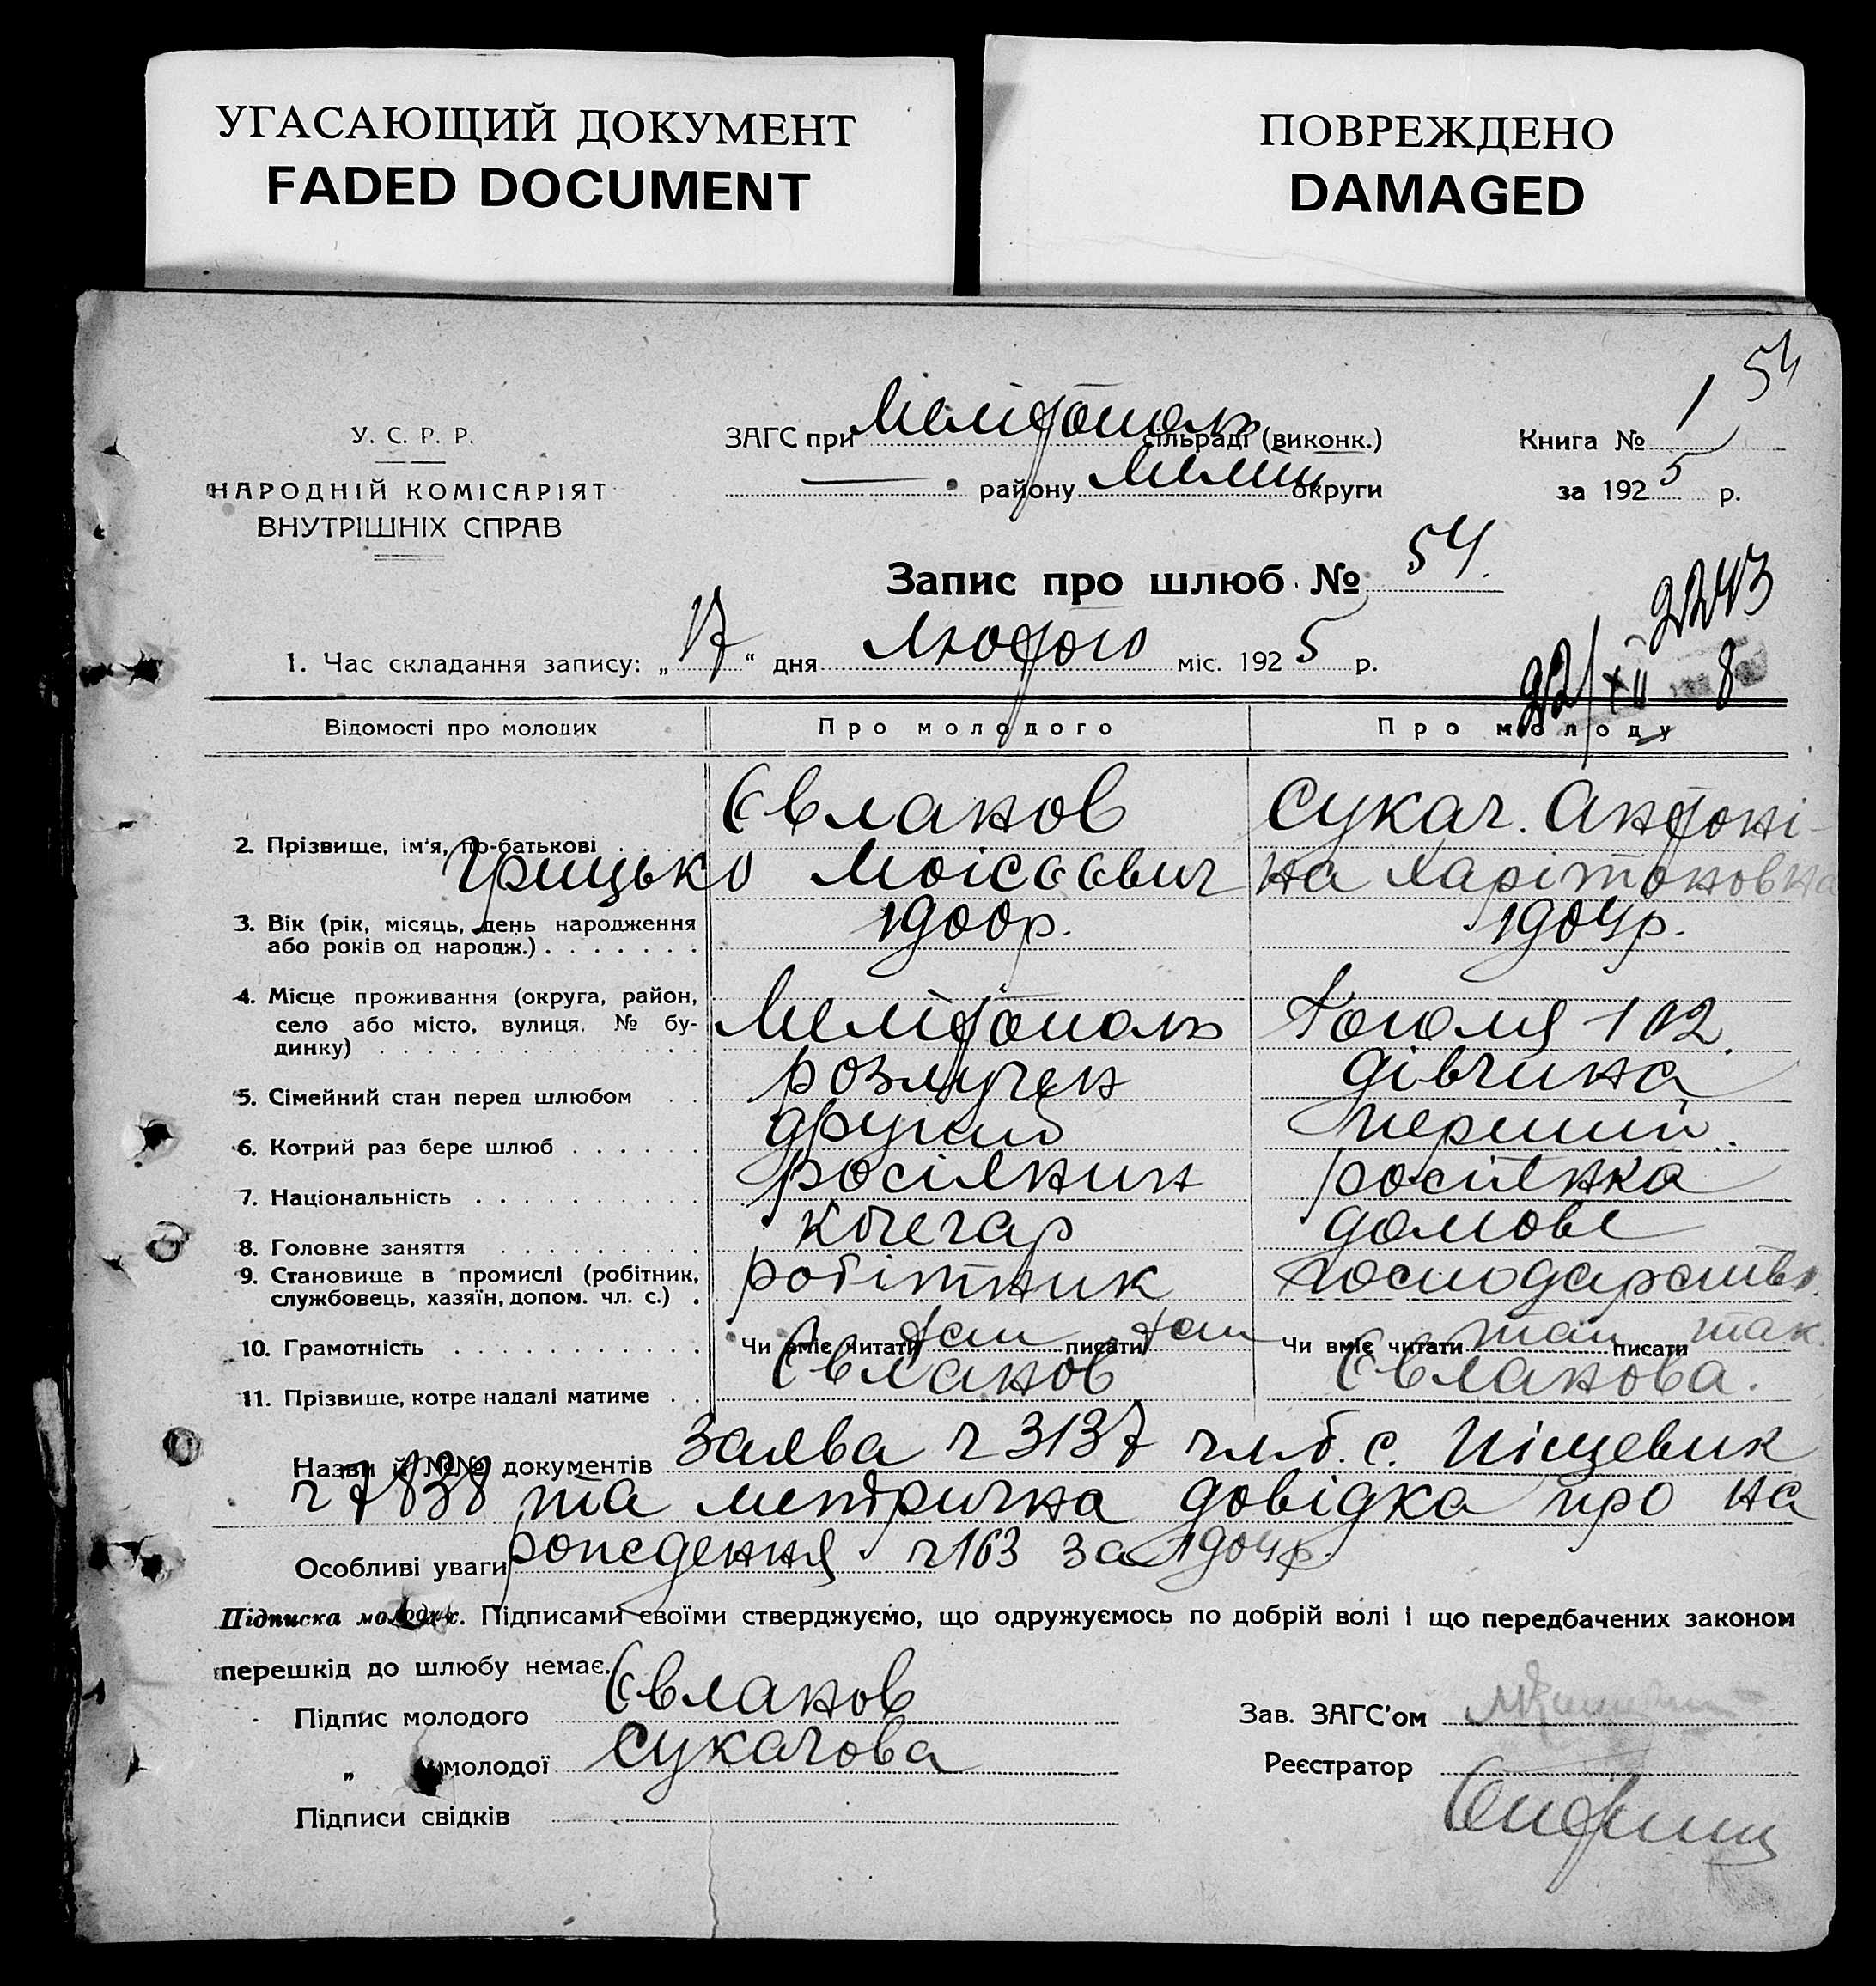 УГАСАЮЩИЙ ДОКУМЕНТ
FADED DOCUMENT
ПОВРЕЖДЕНО
DAMAGED
54
У. С. Р. Р.
НАРОДНІЙ КОМІСАРІЯТ
ВНУТРІШНІХ СПРАВ
ЗАГС при Мелітополь сільраді (виконк.)
— району Мелит округи
Книга № 1
за 1925 р.
Запис про шлюб № 54.
2243
22/XII 8
1. Час складання запису: „17“ дня Лютого міс. 1925 р.
Відомості про молодих Про молодого Про молоду
2. Прізвище, ім'я, по-батькові Євланов Сукач. Антоні-
Грицько Моісєєвич на Харітоновна
3. Вік (рік, місяць, день народження 1900р. 1904р.
або років од народж.)
4. Місце проживання (округа, район,
село або місто, вулиця, № бу- Мелітополь Гоголя 102.
динку)
5. Сімейний стан перед шлюбом розлучен дівчина
6. Котрий раз бере шлюб другий перший.
7. Національність росіянин росіянка
8. Головне заняття кочегар домове
9. Становище в промислі (робітник, робітник господарство
службовець, хазяїн, допом. чл. с.)
10. Грамотність Чи вміє читати так писати так Чи вміє читати так писати так
11. Прізвище, котре надалі матиме Євланов Євланова.
Назви й №№ документів Заява ч 3137 чл.б. с. Піщевик
ч 7838 та метрична довідка про на
Особливі уваги рождення ч 163 за 1904р.
Підписка молодих. Підписами своїми стверджуємо, що одружуємось по добрій волі і що передбачених законом
перешкід до шлюбу немає.
Підпис молодого Євланов
Зав. ЗАГС'ом
„ молодої Сукачова
Реєстратор
Підписи свідків